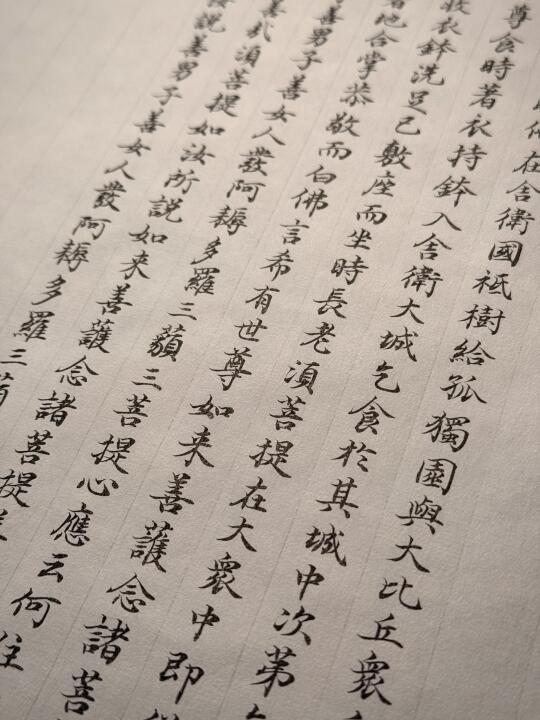 佛在舍衛國祇樹給孤獨園與大比丘衆
尊食時著衣持鉢入舍衛大城乞食於其城中次第
收衣鉢洗足已敷座而坐時長老須菩提在大衆中即
著地合掌恭敬而白佛言希有世尊如来善護念諸菩
善男子善女人發阿耨多羅三藐三菩提心應云何住
善哉須菩提如汝所説如来善護念諸菩提
説善男子善女人發阿耨多羅三藐